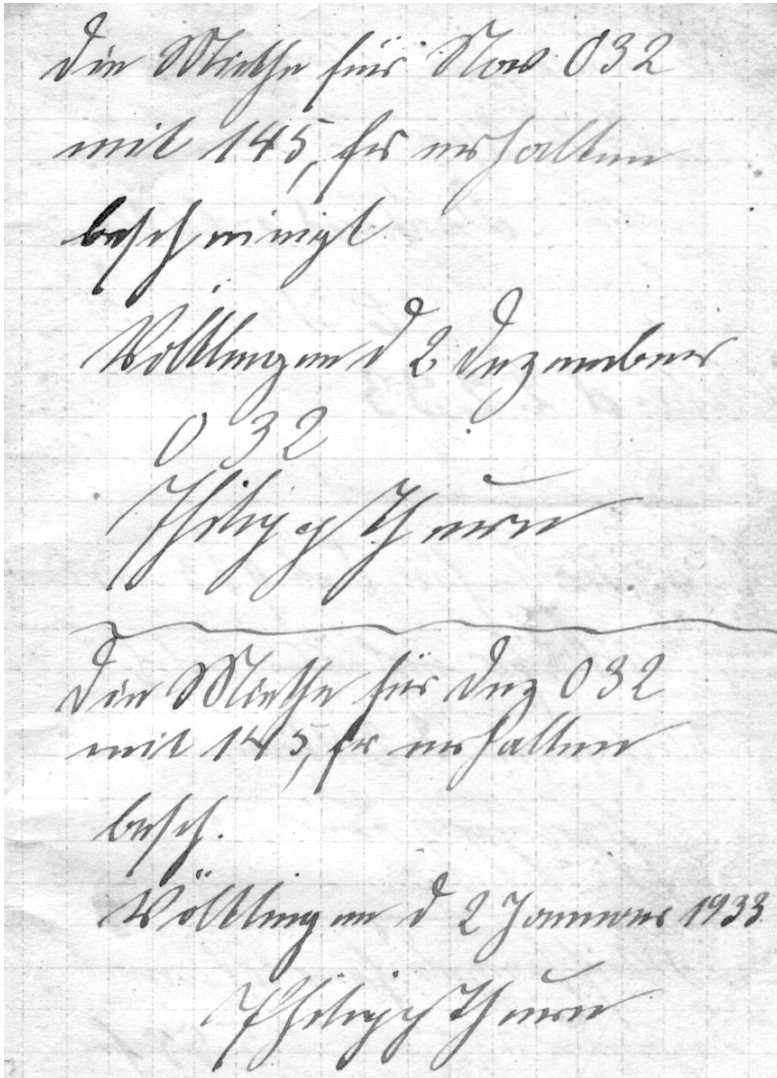 Die Miethe für Nov 032
mit 145, fr erhalten
bescheinigt
Völklingen d 2 Dezember
032
Philipp Thurn
Die Miethe für Dez 032
mit 145, fr erhalten
besch.
Völklingen d 2 Januar 1933
Philipp Thurn